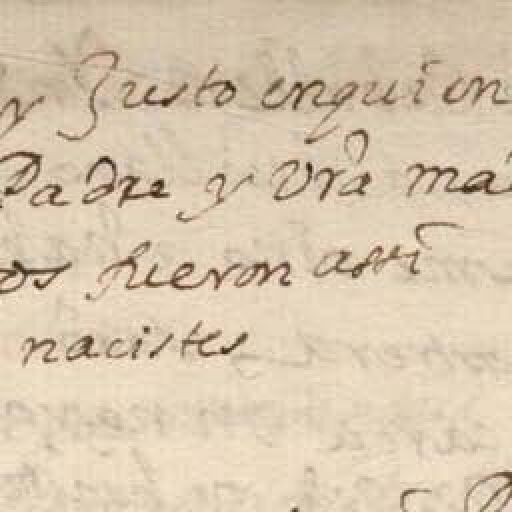 y Justo enquien
Padre y Vrã ma
os fueron assi
nacistes